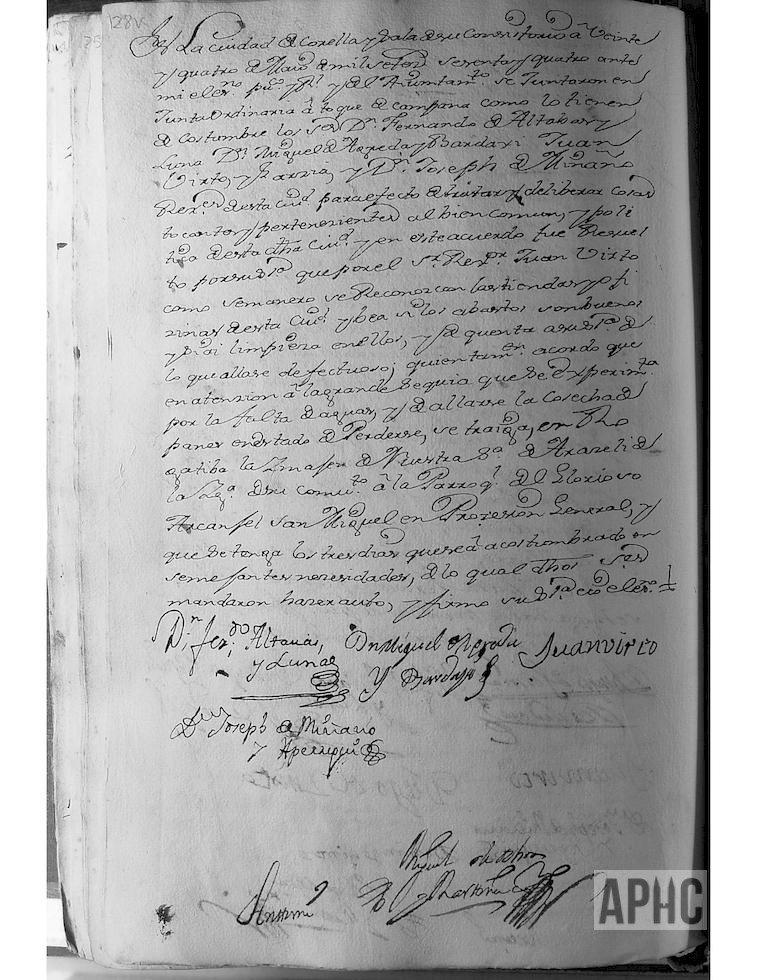 128v
En La ciudad de Corella y Sala de su Consistorio â Veinte
y quatro de Maio de mil setez.s sesenta y quatro ante
mi el es.no pu.co y R.l y del Aiuntam.to se Juntaron en
Junta ordinaria â toque de campana como lo tienen
de costumbre los ss.res D.n Fernando de Altabas y
Luna D.n Miguel de Agreda y Bardaxi Juan
Virto, y D.n Joseph de Miñano
Rex.es desta ciu.d para efecto de tratar y deliberar cosas
tocantes y pertenecientes al bien comun, y poli
tico desta dha Ciu.d y en este acuerdo fue Resuel
to por su S.ria que por el s.r Rex.or Juan Virto
como semanero se Reconozcan las tiendas y ofi
zinas desta Ciu.d y bea si los abastos son buenos
y si ai limpieza en ellos, y de quenta a su S.ria de
lo que allase defectuoso; quientam.en acordo que
en atension â la grande sequia que se experim.ta
por la falta de aguas, y de allarse la Cosecha de
panes en estado de Perderse, se traiga, en Ro
gatiba la Imajen de Nuestra S.ra de Araceli de
la Ygl.a de su comu.to â la Parroq.l del Glorioso
Arcanjel San Miguel en Prozesion General, y
que se tenga los tres dias que se â acostumbrado en
semejantes nezesidades, de lo qual dhos ss.res
mandaron hazer auto, y firmo su S.ria con el es.no
D.n Fer.do Altauas, Dn Miguel Agreda Juan virto
y Luna y Bardaxi
Dn Joseph de Miñano
y
Antemi Miguel
APHC